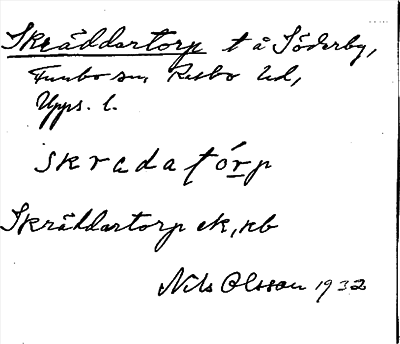 Skräddartorp t å Söderby,
Funbo sn, Rasbo hd,
Upps. l.
skradatórp
Skräddartorp ek, kb
Nils Olsson 1932